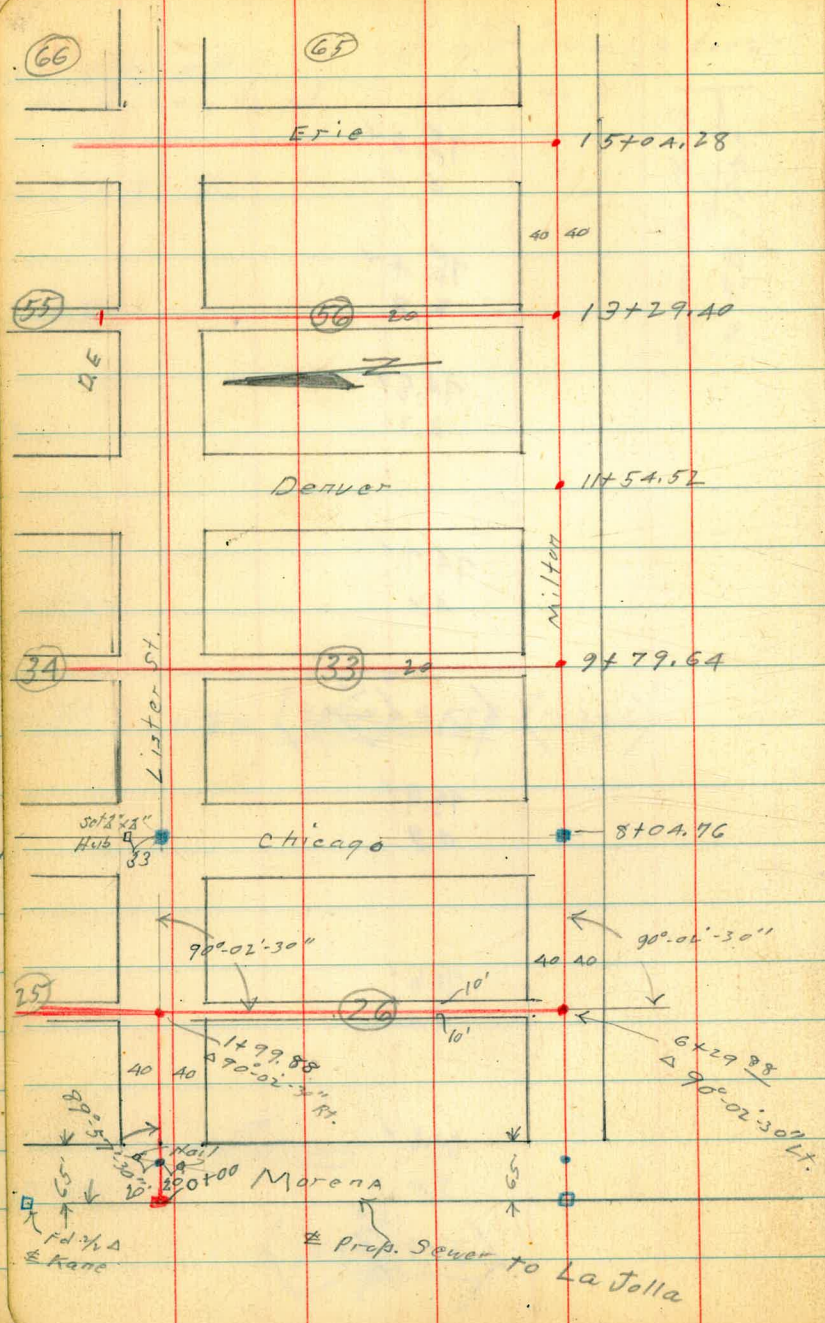 66
65
Erie
15+04.28
40 40
55
56
20
13+29.40
D.E
Denver
11+54.52
Milton
34
33
20
9+79.64
Lister St.
Set 2"x2"
Hub
33
Chicago
8+04.76
90°-02'-30"
90°-02'-30"
40 40
25
26
10'
10'
1+99.88
Δ 90°-02'-30" Rt.
6+29.88
Δ 90°-02'-30" Lt.
40 40
89°-57'-30"
Nail
20
20
0+00
Morena
65
Fd.
Kane
Prop. Sewer to La Jolla